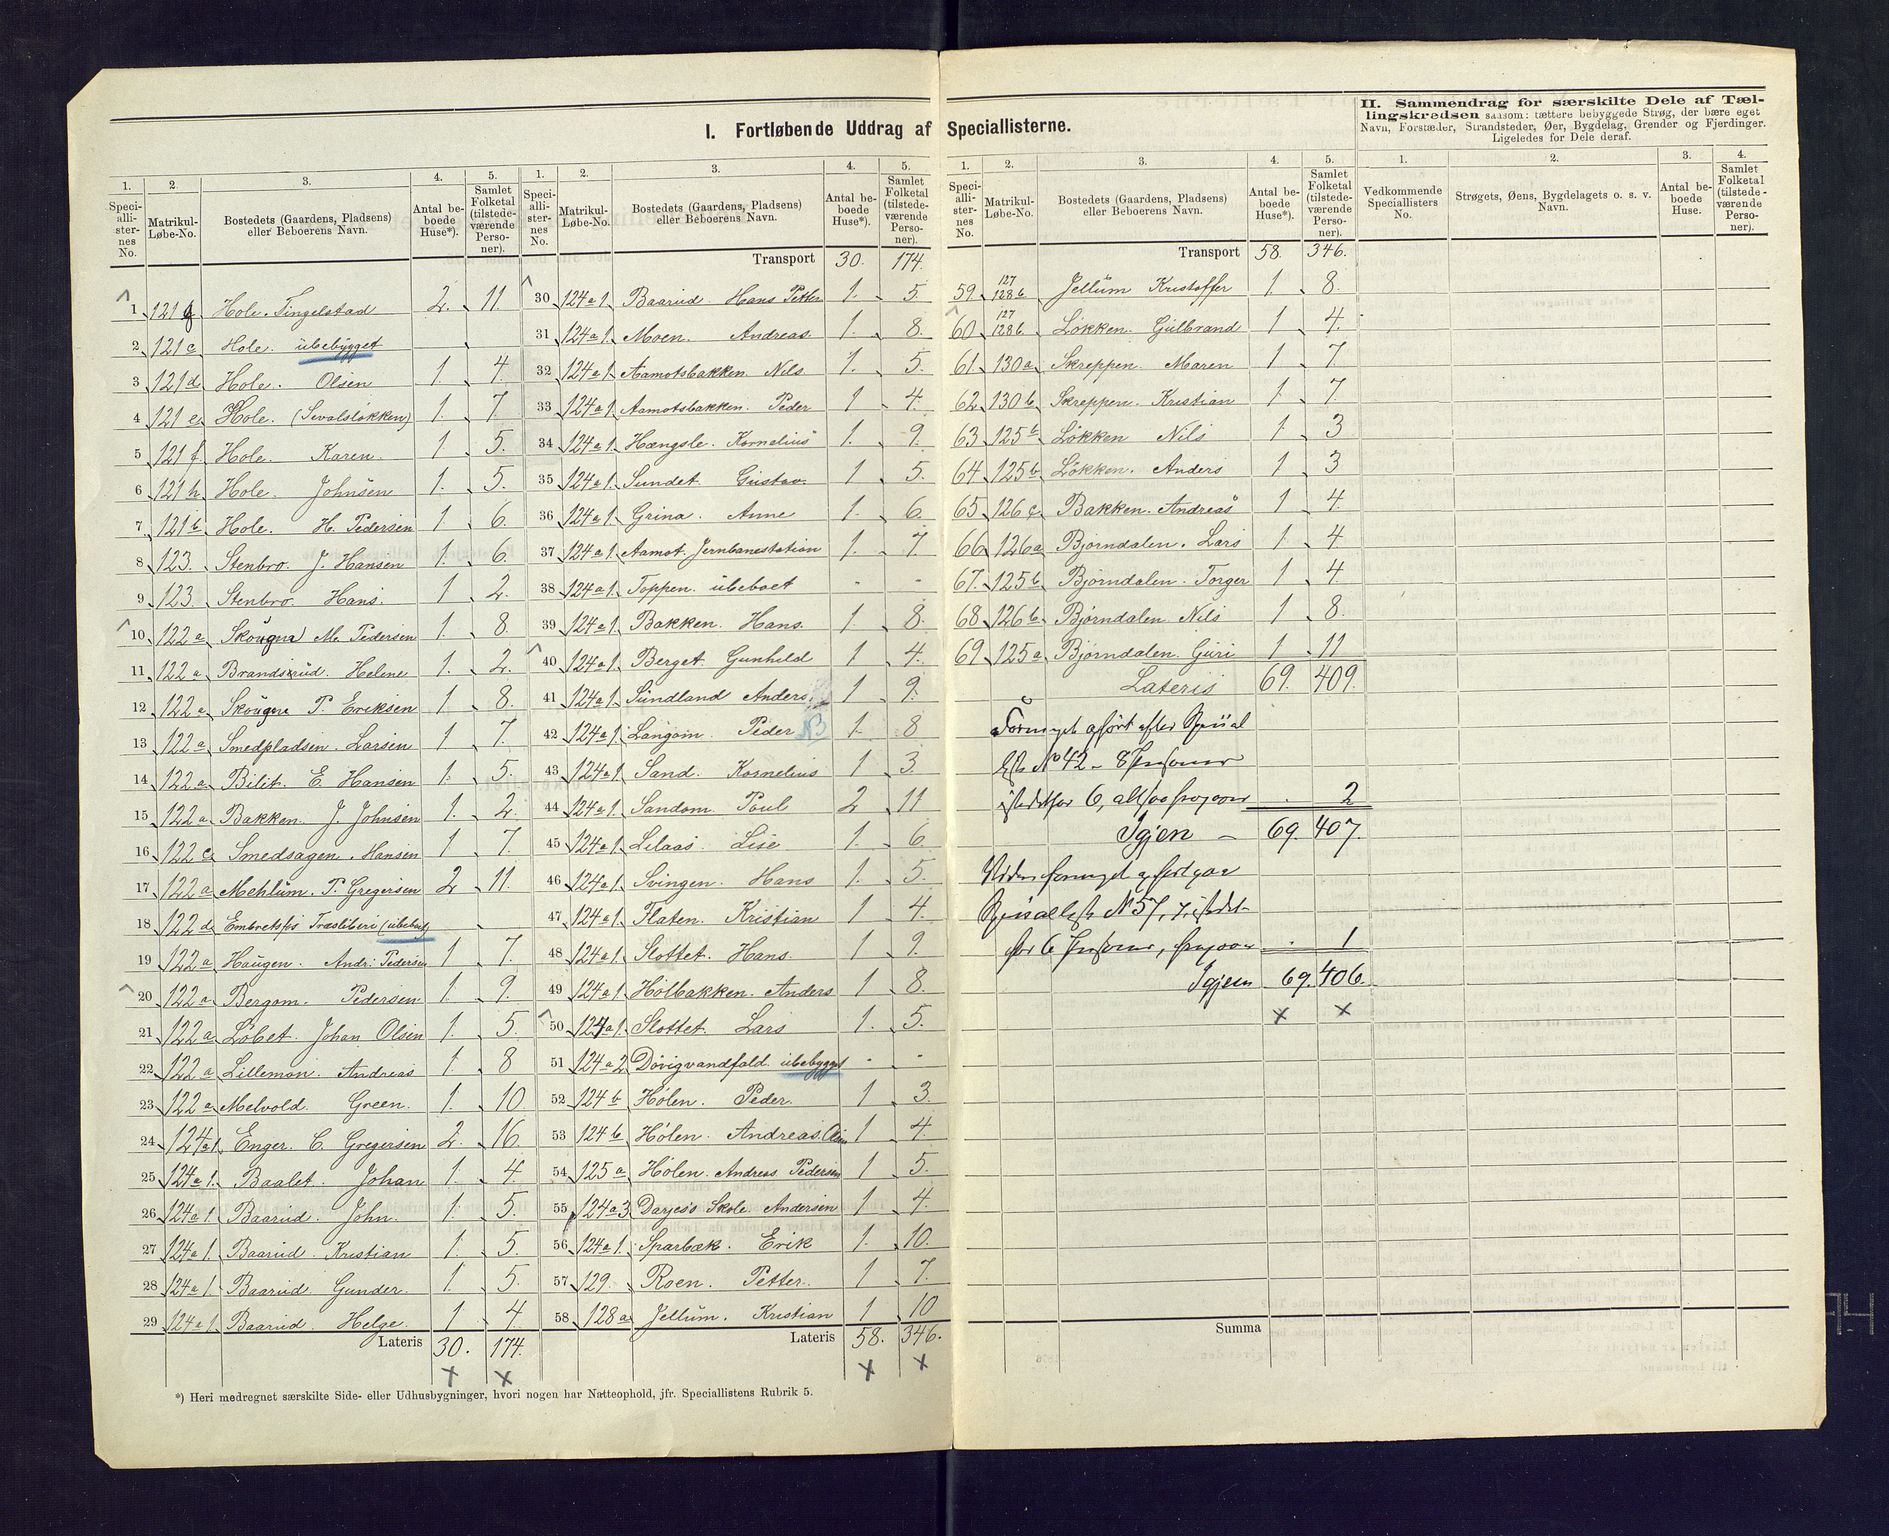 I. Fortløbende Uddrag af Speciallisterne.
1. 2. 3. 4. 5.
Speci-alli-ster-nes No. Matrikul-Løbe-No. Bostedets (Gaardens, Pladsens) eller Beboerens Navn. Antal be-boede Huse*). Samlet Folketal (tilstede-værende Perso-ner).
1 121 g Hole. Tingelstad 2. 11.
2 121 c Hole. ubebygget
3 121 d Hole. Olsen 1 4.
4 121 e Hole. (Sevalsløkken) 1. 7.
5 121 f Hole. Karen. 1 5.
6 121 h Hole. Johnsen 1. 5.
7 121 b Hole. H. Pedersen 1 6.
8 123. Stenbro. J. Hansen 1. 6.
9 123 Stenbro. Hans. 1 2.
10 122 a Skougna M. Pedersen 1. 8.
11 122 a Brandsrud. Helene 1. 2.
12 122 a Skougna P. Eriksen 1 8.
13 122 a Smedpladsen. Larsen 1 7.
14 122 a Bilit. E. Hansen 1. 5.
15 122 a Bakken. J. Johnsen 1. 2.
16 122 c Smedsagen. Hansen 1 7.
17 122 a Mehlum. P. Gregersen 2 11.
18 122 d Træsliberi (ubeboet)
19 122 a Haugen. Andr. Pedersen 1 7.
20 122 a Bergom. Pedersen 1 9.
21 122 a Løbet. Johan Olsen 1. 5.
22 122 a Lillemon. Andreas 1. 8
23 122 a Melvold. Green. 1. 10
24 124 a 1 Enger. C. Gregersen 2. 16
25 124 a 1. Baalet. Johan 1. 4.
26 124 a 1. Baarud. John. 1. 5.
27 124 a 1. Baarud. Kristian 1. 5.
28 124 a 1. Baarud Gunder. 1. 5
29 124 a 1 Baarud Helge. 1 4
Lateris 30. 174.
1. 2. 3. 4. 5.
Speci-alli-ster-nes No. Matrikul-Løbe-No. Bostedets (Gaardens, Pladsens) eller Beboerens Navn. Antal be-boede Huse*). Samlet Folketal (tilstede-værende Perso-ner).
Transport 30. 174.
30 124 a 1 Baarud. Hans Petter 1. 5.
31 124 a 1. Moen. Andreas 1. 8.
32 124 a 1 Aamotsbakken Nils 1. 5
33 124 a 1. Aamotsbakken. Peder 1 4.
34 124 a 1 Hængsle. Kornelius 1. 9.
35 124 a 1 Sundet. Gustav. 1 5.
36 124 a 1 Grina. Anne 1. 6.
37 124 a 1 Aamot. Jernbanestation 1. 7
38 124 a 1. Toppen. ubeboet - -
39 124 a 1. Bakken. Hans. 1. 8.
40 124 a 1 Berget. Gunhild 1 4.
41 124 a 1. Sundland Anders 1 9.
42 124 a 1 Langøin. Peder NB 1. 8
43 124 a 1. Sand. Kornelius 1 3.
44 124 a 1. Sandom. Poul 2 11
45 124 a 1 Lilaas. Lise 1. 6
46 124 a 1. Svingen. Hans 1. 5.
47 124 a 1 Flaten. Kristian 1 4.
48 124 a 1 Slottet. Hans. 1 9.
49 124 a 1 Holbakken. Anders 1 8.
50 124 a 1. Slottet. Lars 1. 5.
51 124 a 2 Døvigvandfald. ubebygget - -
52 124 b Hølen. Peder. 1 3.
53 124 b Hølen. Andreas. 1 4.
54 125 a Hølen. Andreas Pedersen 1 5.
55 124 a 3 Darjes's Skole. Andersen 1 4
56 124 a 1. Sparbæk. Erik 1. 10.
57 129. Roen. Petter. 1 7.
58 128 a Jellum. Kristian 1 10
Lateris 58. 346.
*) Heri medregnet særskilte Side- eller Udhusbygninger, hvori nogen har Natteophold, jfr. Speciallistens Rubrik 5.
1. 2. 3. 4. 5.
Speci-alli-ster-nes No. Matrikul-Løbe-No. Bostedets (Gaardens, Pladsens) eller Beboerens Navn. Antal be-boede Huse*). Samlet Folketal (tilstede-værende Perso-ner).
Transport 58. 346.
59 127 128 b Jellum Kristoffer 1 8.
60 127 128 b Løkken. Gulbrand 1 4.
61 130 a Skreppen. Maren 1 7
62 130 b Skreppen. Kristian 1 7.
63 125 b Løkken Nils 1 3
64 125 b Løkken. Anders 1 3
65 126 c Bakken. Andreas 1 4.
66 126 a Bjørndalen. Lars 1 4
67. 125 b Bjørndalen. Torger 1 4.
68 126 b Bjørndalen Nils 1 8.
69 125 a Bjørndalen. Guri 1 11
Lateris 69. 409.
No 42 - 8 Personer
istedetfor 6, - 2
Igjen - 69. 407.
No 57, 7, istedet-
for 6 Personer, - 1
Igjen 69. 406.
Summa
II. Sammendrag for særskilte Dele af Tæl-
lingskredsen saasom: tættere bebyggede Strøg, der bære eget
Navn, Forstæder, Strandsteder, Øer, Bygdelag, Grender og Fjerdinger.
Ligeledes for Dele deraf.
1. 2. 3. 4.
Vedkommende Speciallisters No. Strøgets, Øens, Bygdelagets o. s. v. Navn. Antal be-boede Huse. Samlet Folketal (tilstede-værende Perso-ner).